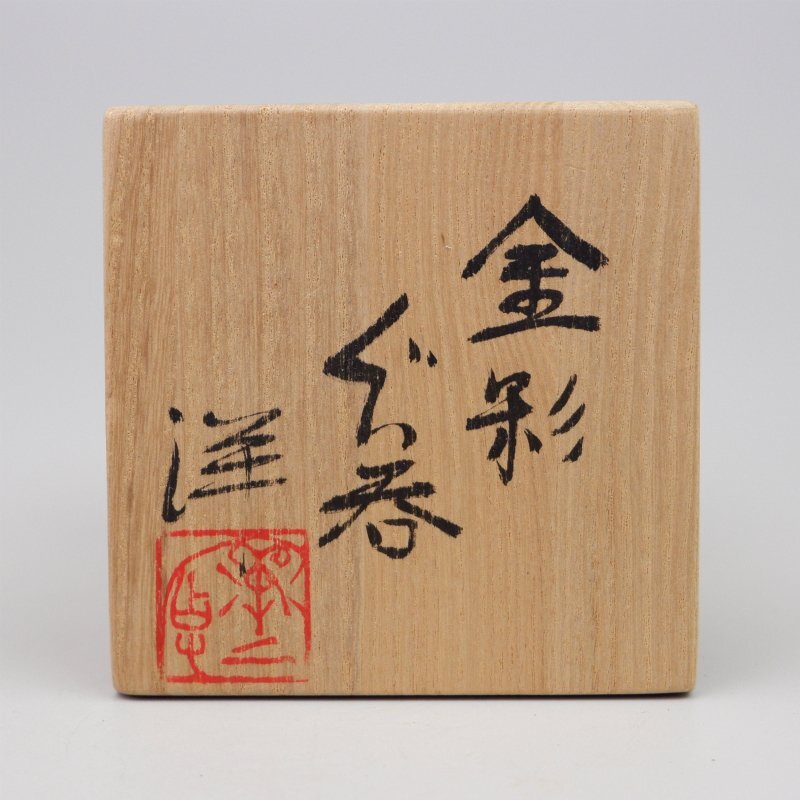 金彩
ぐい呑
洋